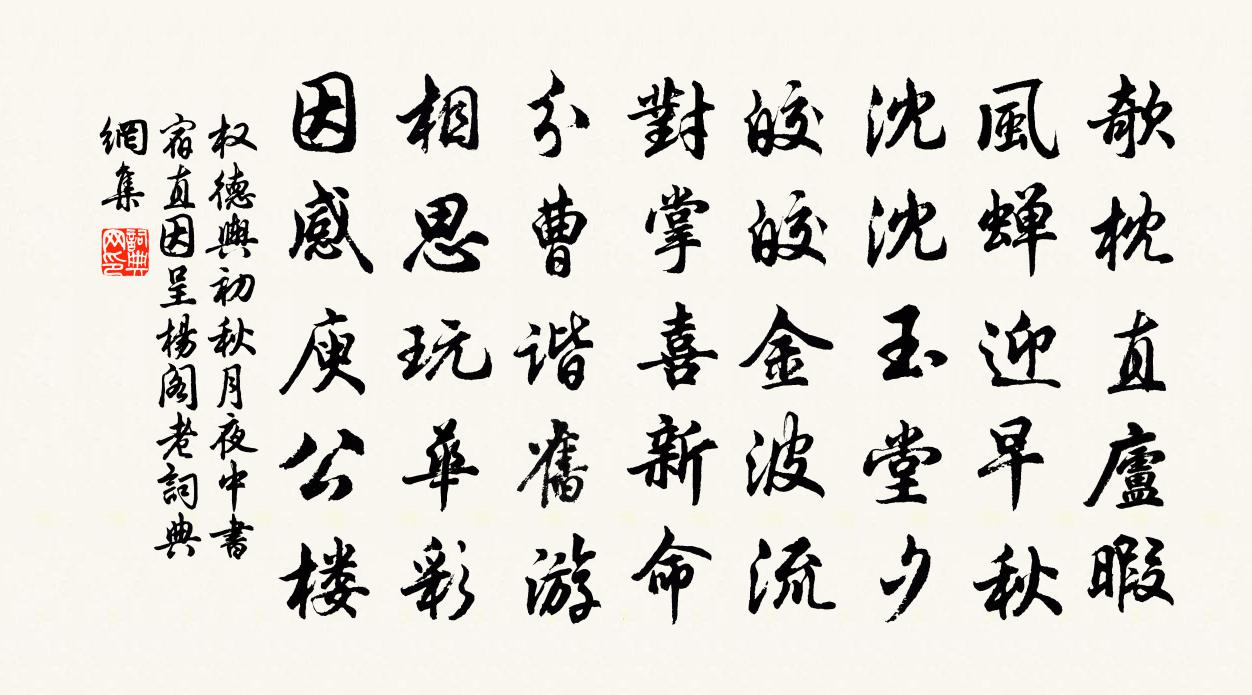 欹枕直廬暇
風蝉迎早秋
沈沈玉堂夕
皎皎金波流
對掌喜新命
分曹谐舊游
相思玩華彩
因感庾公楼
权德輿初秋月夜中書
宿直因呈楊阁老詞典
網集
詞典网印